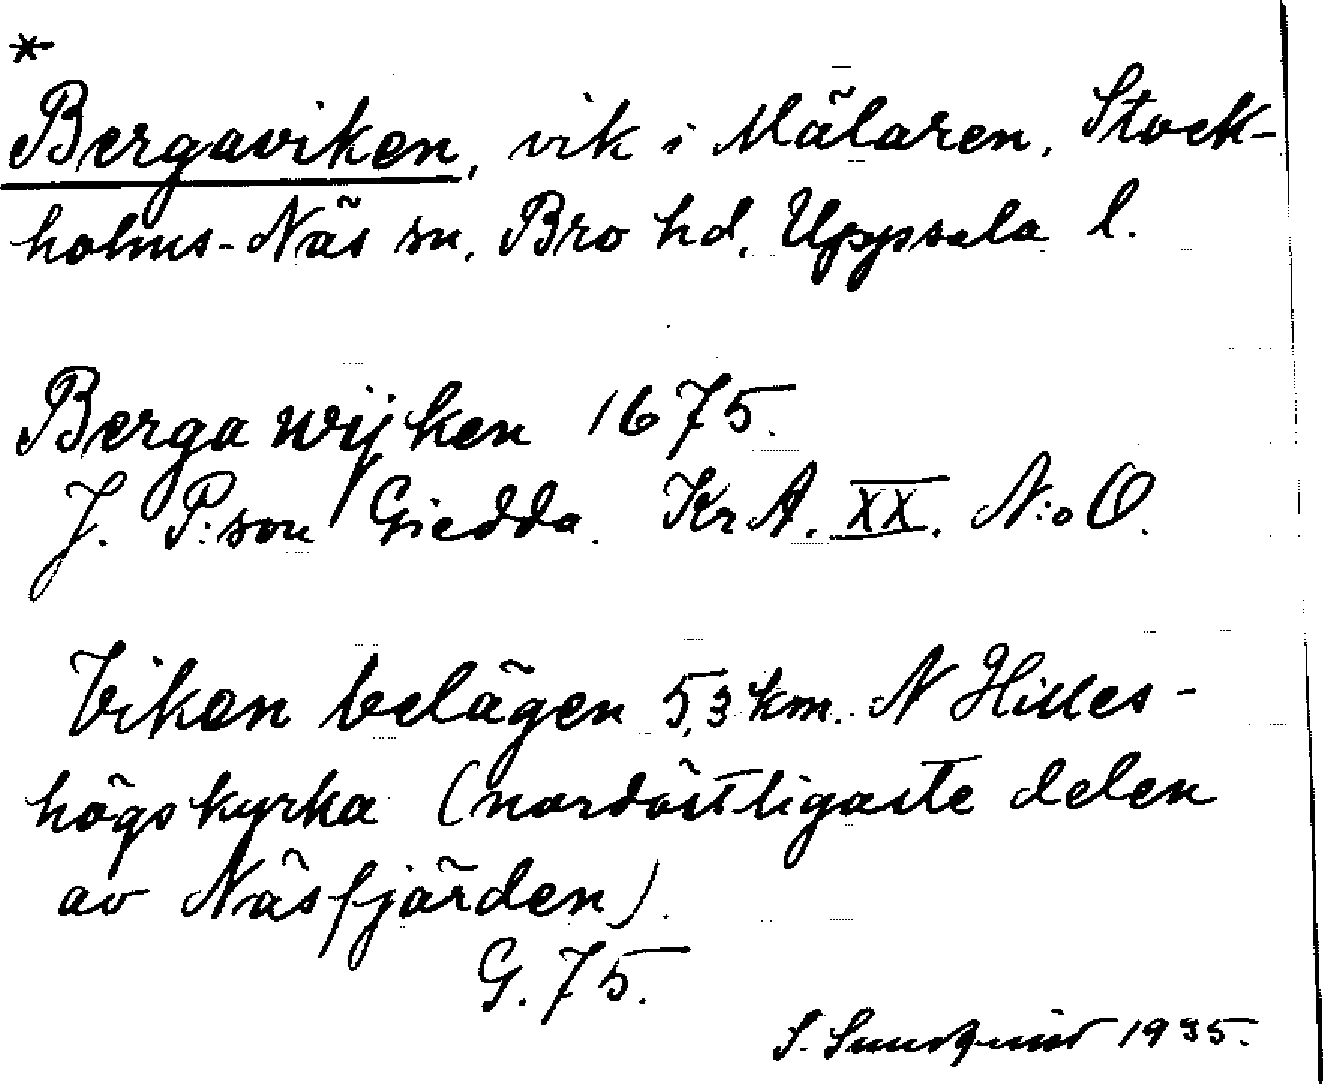 *
Bergaviken, vik i Mälaren, Stock-
holms-Näs sn, Bro hd, Uppsala l.
Berga wijken 1675.
J. P:son Giedda. KrA. XX. N:o O.
Viken belägen 5,3 km. N Hilles-
högs kyrka (nordöstligaste delen
av Näsfjärden).
G. 75.
S. Sundqvist 1935.